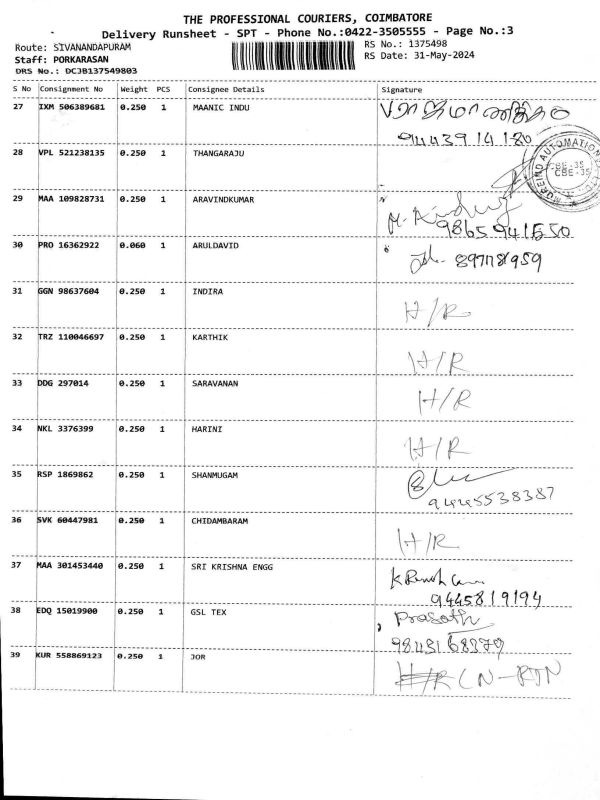 THE PROFESSIONAL COURIERS, COIMBATORE
Delivery Runsheet - SPT - Phone No.:0422-3505555 - Page No.:3
Route: SIVANANDAPURAM
RS No.: 1375498
Staff: PORKARASAN
RS Date: 31-May-2024
DRS No.: DCJB137549803
S No Consignment No Weight PCS Consignee Details Signature
27 IXM 506389681 0.250 1 MAANIC INDU
94439 14 180
28 VPL 521238135 0.250 1 THANGARAJU
CBE-35
29 MAA 109828731 0.250 1 ARAVINDKUMAR
9865941550
30 PRO 16362922 0.060 1 ARULDAVID
31 GGN 98637604 0.250 1 INDIRA H/R
32 TRZ 110046697 0.250 1 KARTHIK H/R
33 DDG 297014 0.250 1 SARAVANAN H/R
34 NKL 3376399 0.250 1 HARINI H/R
35 RSP 1869862 0.250 1 SHANMUGAM
9445538387
36 SVK 60447981 0.250 1 CHIDAMBARAM H/R
37 MAA 301453440 0.250 1 SRI KRISHNA ENGG
9445819194
38 EDQ 15019900 0.250 1 GSL TEX Prasath
39 KUR 558869123 0.250 1 JOR H/R CN-RTN